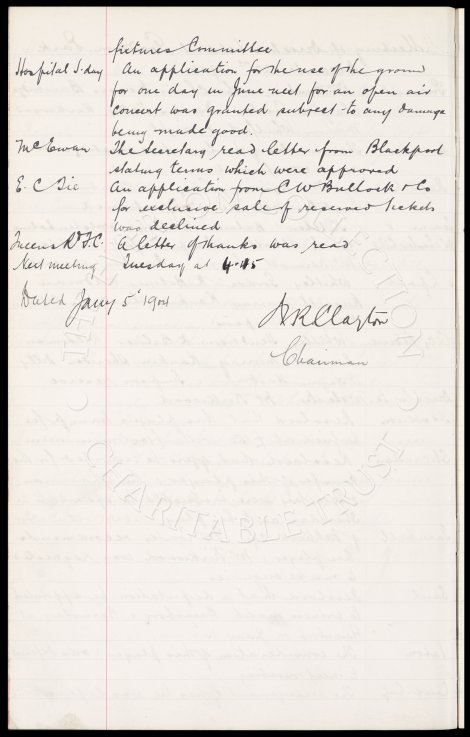 fixtures Committee
Hospital S-day An application for the use of the ground
for one day in June next for an open air
concert was granted subject to any damage
being made good.
McEwan The Secretary read letter from Blackpool
stating terms which were approved
E. C Tie An application from C W Bullock & Co
for exclusive sale of reserved tickets
was declined
Queens R F.C. A letter of thanks was read
Next meeting Tuesday at 4.15
Dated Jany 5 1904
Chairman
CHARITABLE TRUST